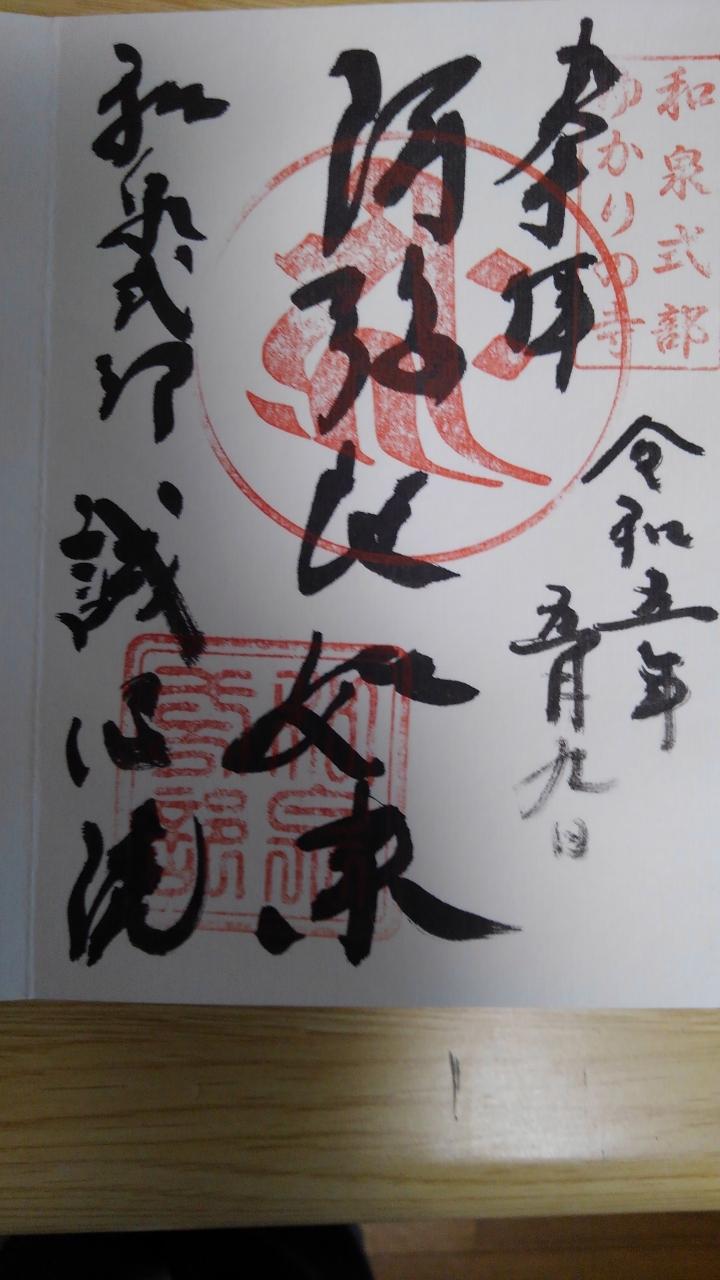 和泉式部
ゆかりの寺
奉拝
令和五年
五月九日
阿弥陀如来
和泉式部 誠心院